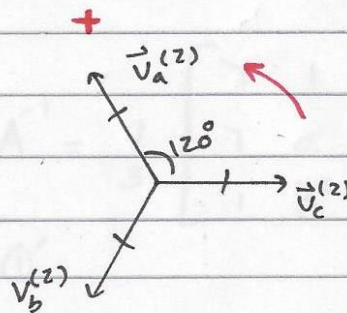 +
V⃗a(2)
120°
V⃗c(2)
Vb(2)